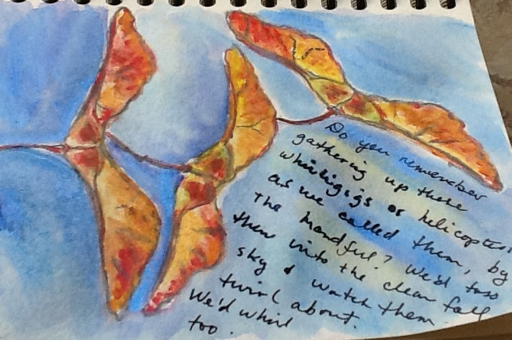 Do you remember
gathering up these
whirligigs or helicopters
as we called them, by
the handful? We'd toss
them into the clear fall
sky & watch them
twirl about.
We'd whirl
too.